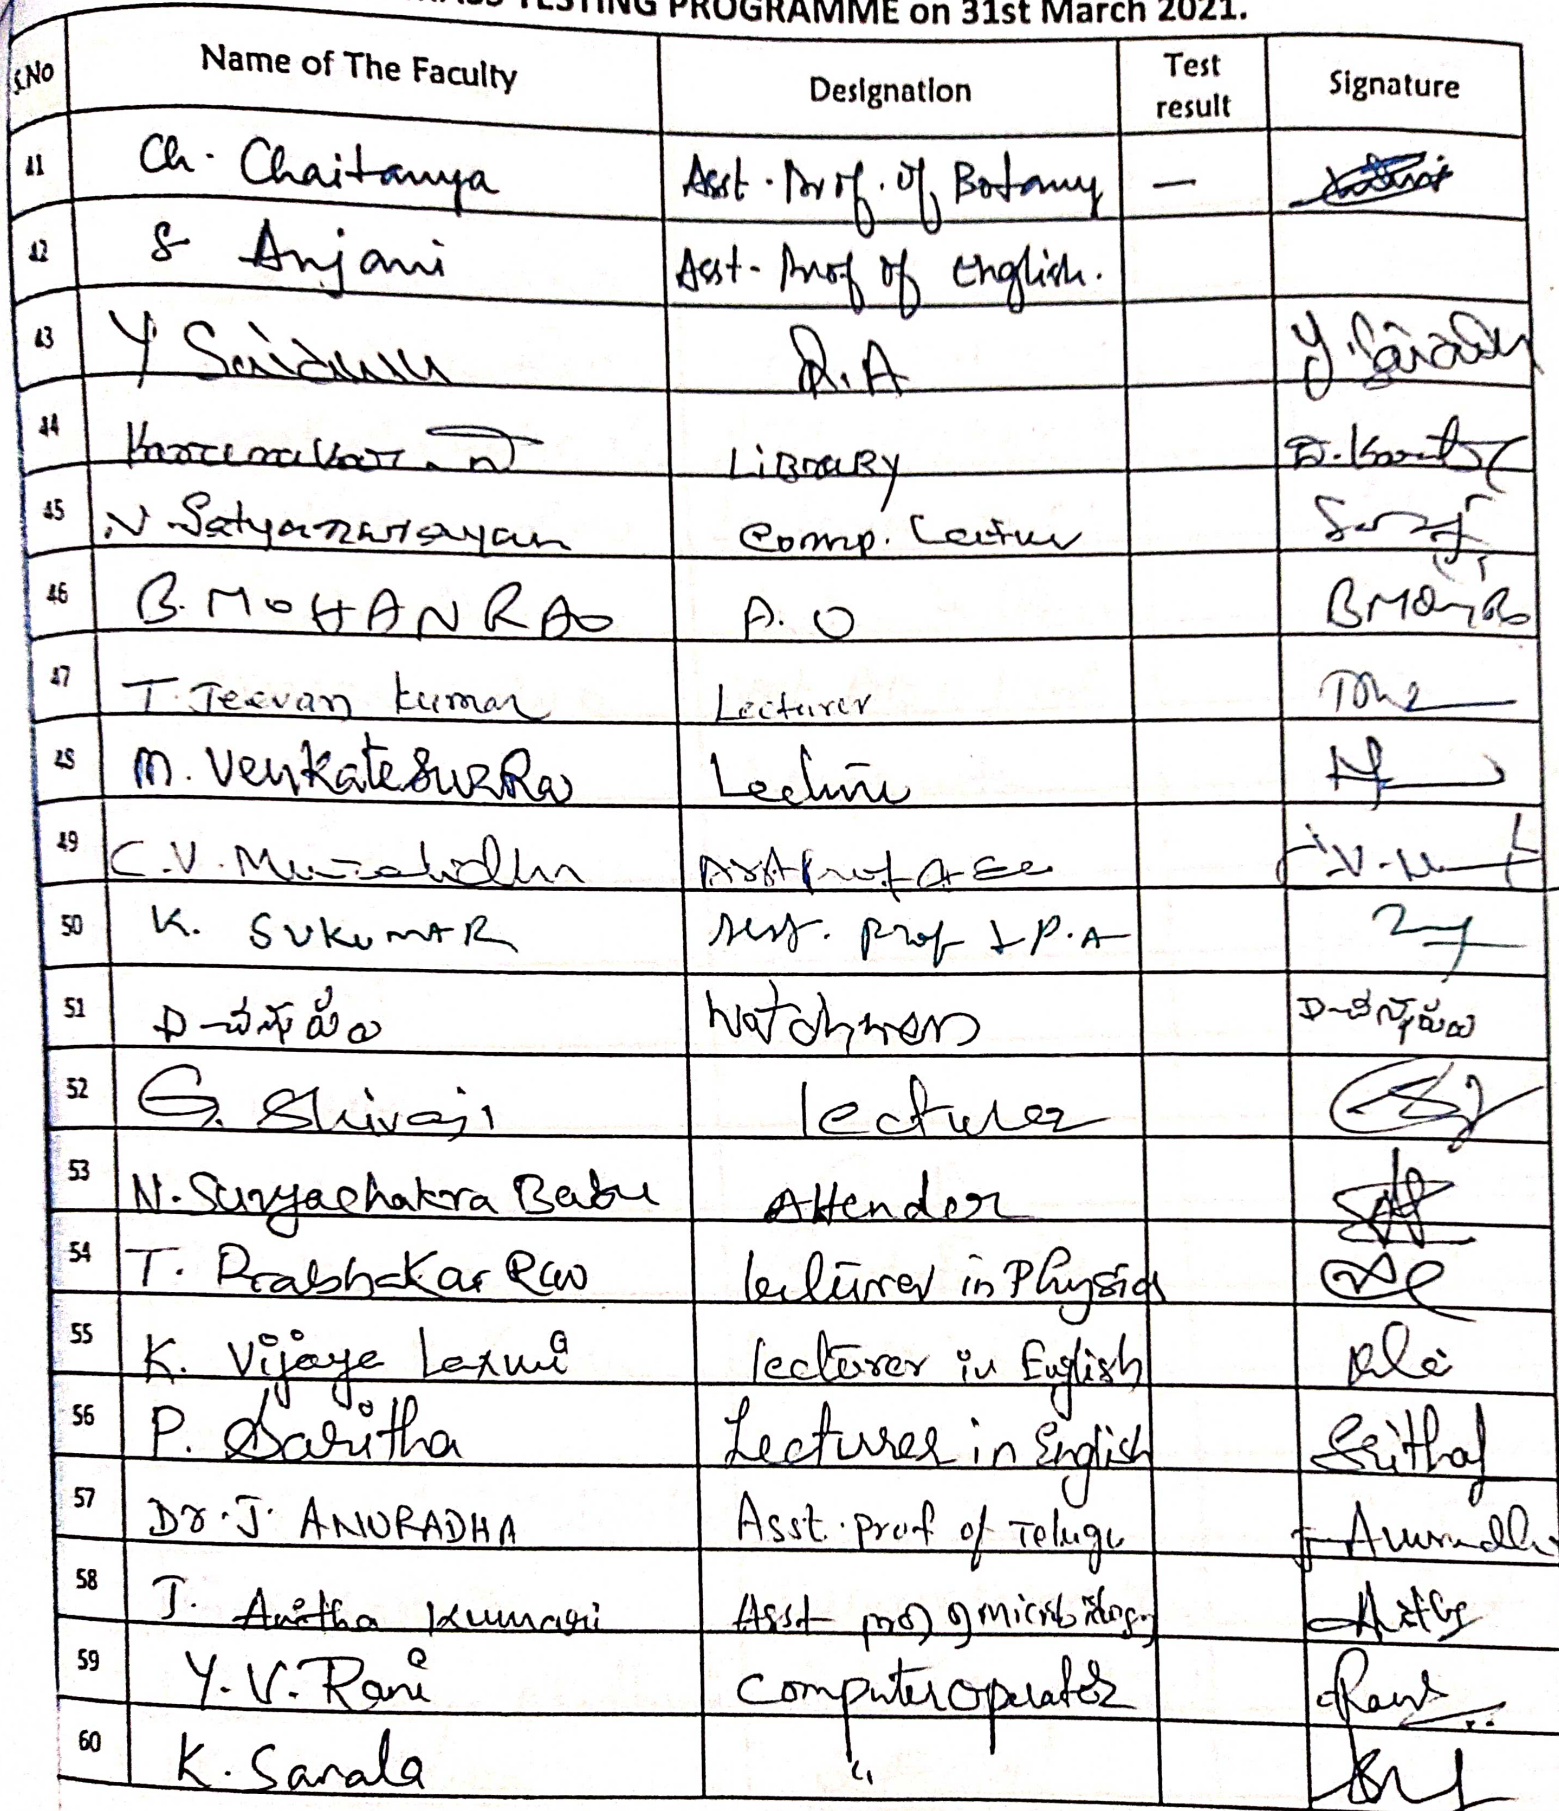 TESTING PROGRAMME on 31st March 2021.
S.No Name of The Faculty Designation Test result Signature
41 Ch. Chaitanya Asst. Prof. of Botany —
42 S Anjani Asst. Prof of English.
43 Y Saidulu R.A Y.
44 Karunakar. D LiBRARY D.
45 N. Satyanarayan Comp. Lecturer
46 B. MOHAN RAO A. O
47 T. Jeevan kumar Lecturer
48 M. Venkateswara Rao Lecturer
49 C.V. Asst Prof C.V.
50 K. SUKUMAR Asst. Prof P.A
51 D- Watchmen D-
52 G. Shivaji lecturer
53 N. Suryachakra Babu Attender
54 T. Prabhakar Rao lecturer in Physics
55 K. Vijaya Laxmi lecturer in English
56 P. Saritha Lecturer in English
57 Dr. J. ANURADHA Asst. prof of Telugu J. Anuradha
58 J. Anitha Kumari Asst prof of microbiology
59 Y.V. Rani Computer operator Rani
60 K. Sarala "